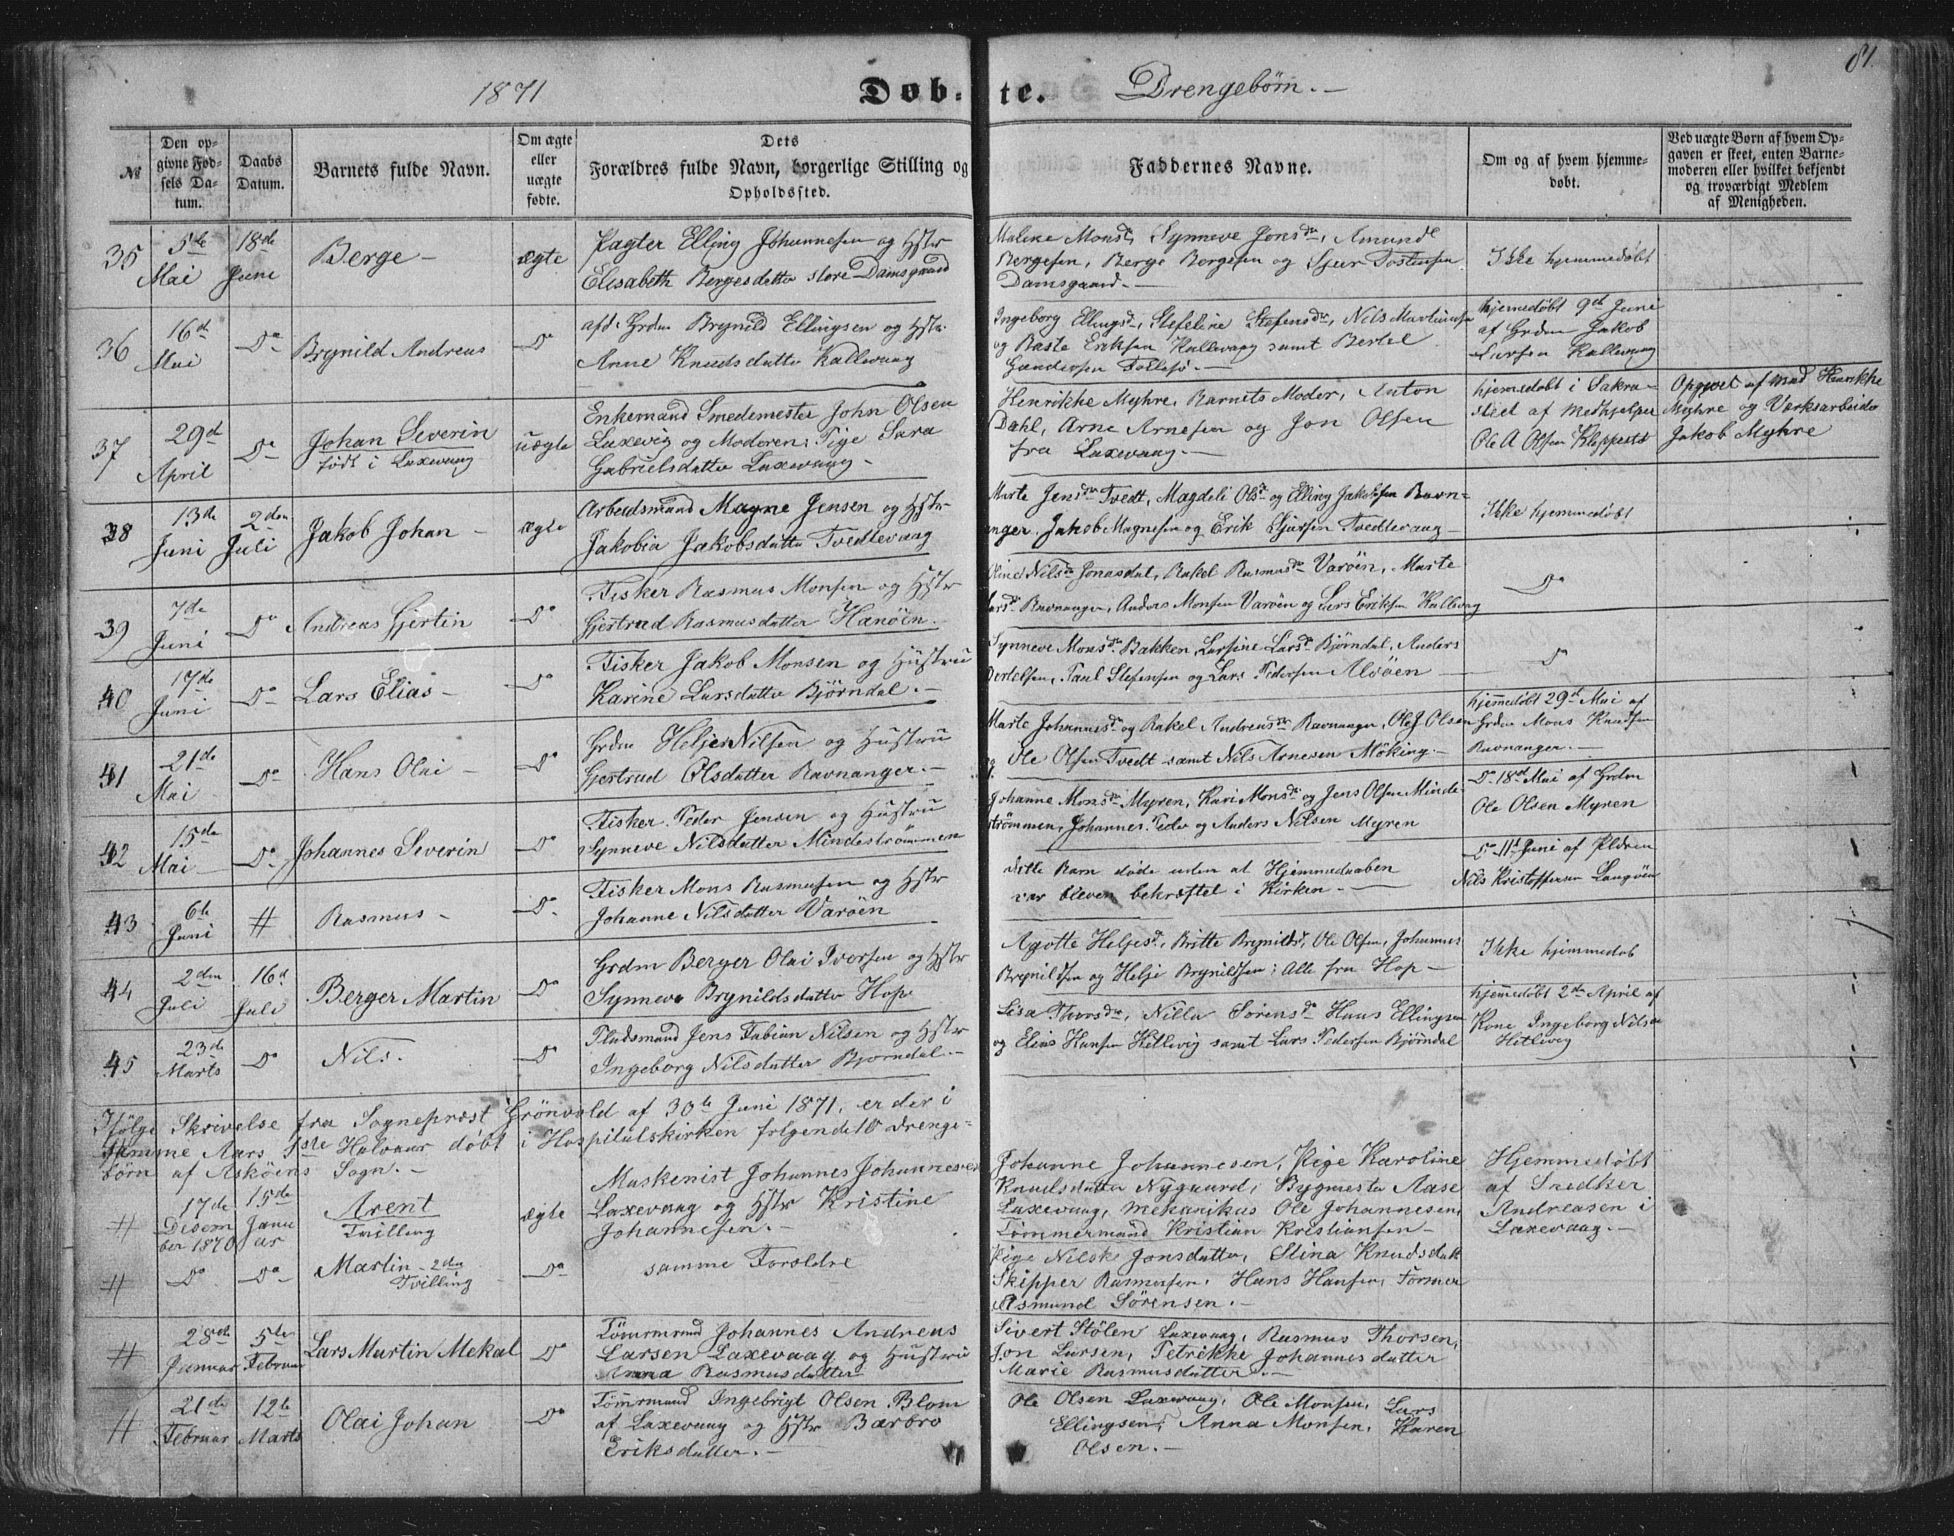 1871
Døb-te. Drengebørn.-
81.
№
Den opgivne Fødsels Datum.
Daabs Datum.
Barnets fulde Navn.
Om ægte eller uægte fødte.
Dets
Forældres fulde Navn, borgerlige Stilling og
Opholdssted.
Faddernes Navne.
Om og af hvem hjemmedøbt.
Ved uægte Børn af hvem Opgaven er skeet, enten Barnemoderen eller hvilket bekjendt og troværdigt Medlem af Menigheden.
35 5te Mai 18de Juni Berge- ægte
Pagter Elling Johannesen og Hstr
Elisabeth Bergesdatter store Damsgaard
Malene Monsdr, Synneve Jonsdr, Amund
Bergesen, Berge Bergesen og Sjur Tostensen
Damsgaard.-
Ikke hjemmedøbt
36 16de Mai Do Brynild Andreas Do
afd. Grdm Brynild Ellingsen og Hstr.
Anne Knudsdatter Kallevaag
Ingeborg Ellingsdr, Stefeline Stefensdr, Nils Martinsen
og Baste Eriksen Kallevaag samt Bertel
Gundersen Follesø.-
hjemedøbt 9de Juni
af Grdm Jakob
Larsen Kallevaag
37 29de April Do Johan Severin uægte
født i Laxevaag
Enkemand Smedemester John Olsen
Laxevig og Moderen: Pige Sara
Gabrielsdatter Laxevaag-
Henrikke Myhre, Barnets Moder, Anton
Dahl, Arne Arnesen og Jon Olsen
fra Laxevaag.-
hjemedøbt i Sakra-
stiet af Medhjelper
Ole A Olsen Kleppestø
Opgivet af Mad Henrikke
Myhre og Værksarbeider
Jakob Myhre
38 13de Juni 2den Juli Jakob Johan- ægte
Arbeidsmand Magne Jensen og Hstr
Jakobia Jakobsdatter Tvedtevaag
Marte Jensdr Tvedt, Magdeli Olsdr og Elling Jakobsen Ravn-
anger, Jakob Magnesen og Erik Sjursen Tvedtevaag-
Ikke hjemmedøbt
39 7de Juni Do Andreas Gjertin Do
Fisker Rasmus Monsen og Hstr
Gjertrud Rasmusdatter Hanøen.
Oline Nilsdr Jonasdal, Rakel Rasmusdr Varøen, Marte
Larsdr Ravnanger, Anders Monsen Varøen og Lars Eriksen Kallevag
Do
40 17de Juni Do Lars Elias- Do
Fisker Jakob Monsen og Hustru
Karine Larsdatter Bjørndal.-
Synneve Monsdr Bakken, Larsine Larsdr Bjørndal, Anders
Bertelsen, Paul Stefensen og Lars Pedersen Alvøen-
Do
41 21de Mai Do Hans Olai- Do
Grdm Helje Nilsen og Hustru
Gjertrud Olsdatter Ravnanger.-
Marte Johannesdr og Rakel Andreasdr Ravnanger, Ole J. Olsen
og Ole Olsen Tvedt samt Nils Arnesen Møking.-
hjemedøbt 29de Mai af
Grdm Mons Knudsen
Ravnanger.-
42 15de Mai Do Johannes Severin Do
Fisker Peder Jensen og Hustru
Synneve Nilsdatter Mindestrømmen
Johanne Monsdr Myren, Kari Monsdr og Jens Olsen Minde-
strømmen, Johannes Peder og Anders Nilsen Myren
Do 18de Mai af Grdm
Ole Olsen Myren
43 6te Juni # Rasmus- Do
Fisker Mons Rasmusen og Hstr
Johanne Nilsdatter Varøen
dette Barn døde uden at Hjemmedaaben
var bleven bekræftet i Kirken.-
Do 11te Juni af Pldren
Nils Kristoffersen Langøen
44 2den Juli 16de Juli Berger Martin Do
Grdm Berger Olai Iversen og Hstr
Synneve Brynildsdatter Hop
Agotte Heljesdr, Britte Brynildsdr, Ole Olsen, Johannes
Brynildsen og Helje Brynildsen; Alle fra Hop-
Ikke hjemmedøb
45 23de Marts Do Nils. Do
Pladsmand Jens Fabian Nilsen og Hstr
Ingeborg Nilsdatter Bjørndal.-
Lisa Thorsdr, Nilla Sørensdr Hans Ellingsen
og Elias Hansen Hetlevig samt Lars Pedersen Bjørndal
hjemedøbt 2de April af
Kone Ingeborg Nilsdr
Hetlevig
Ifølge Skrivelse fra Sognepræst Grönvold af 30te Juni 1871, er der i
samme Aars 1ste Halvaar døbt i Hospitalskirken følgende 10 Drenge-
børn af Askøens Sogn.-
# 17de Desember 1870 15de Januar Arent ægte
Tvilling
Maskenist Johannes Johannesen
Laxevaag og Hstr Kristine
Johannesen.-
Johanne Johannesen, Pige Karoline
Knudsdatter Nygaard, Bygmester Aase
Laxevaag, Mekanikus Ole Johannesen,
Tømmermand Kristian Kristiansen-
Hjemmedøbt
af Snedker
Andreasen i
Laxevaag.-
# Do Do Martin-2den Do
Tvilling
samme Foreldre
Pige Nilsk Jonsdatter, Stina Knudsdatt
Skipper Rasmusen, Hans Hansen, Former
Asmund Sörensen.-
# 28de Januar 5te Februar Lars Martin Mekal Do
Tömrmand Johannes Andreas
Larsen Laxevaag og Hustru
Anna Rasmusdatter
Sivert Stölen Laxevaag, Rasmus Thorsen,
Jon Larsen, Petrikke Johannesdatter
Marie Rasmusdatter.-
# 21de Februar 12te Marts Olai Johan Do
Tömrmand Ingebrigt Olsen Blom
af Laxevaag og Hstr Barbro
Eriksdatter.-
Ole Olsen Laxevaag, Ole Monsen, Lars
Ellingsen, Anna Monsen, Karen
Olsen.-